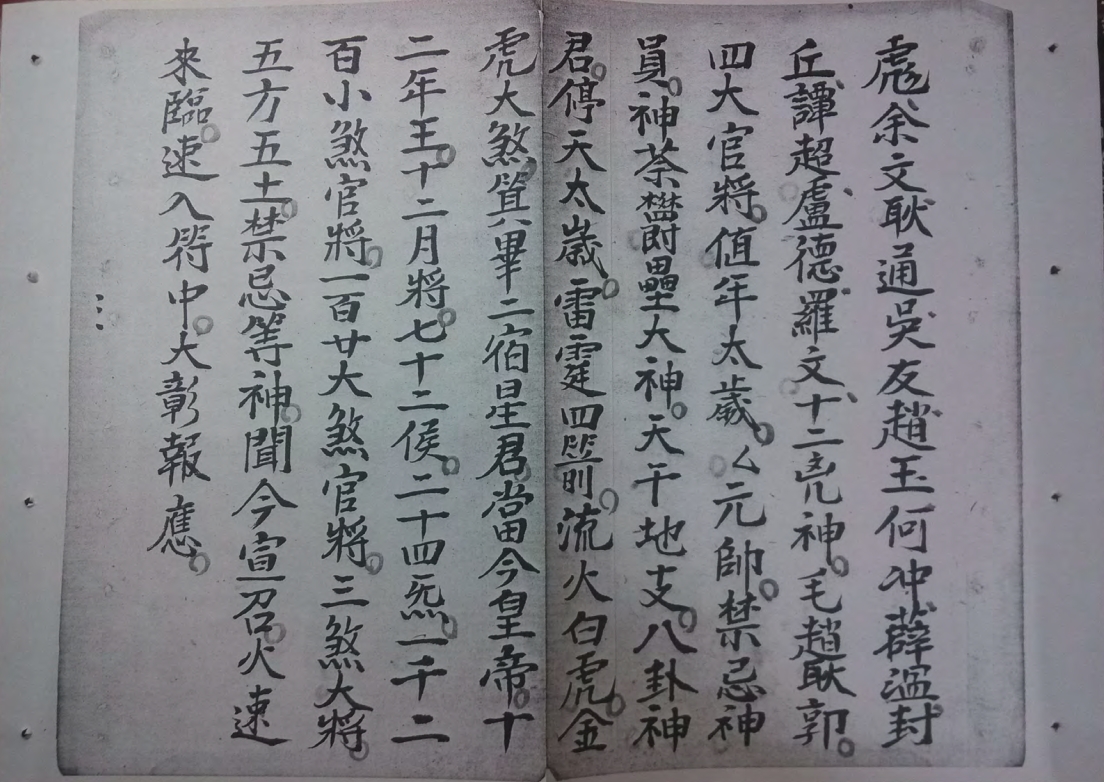 彪余文耿通吳友趙玉何冲薛溫封
丘譚超盧德羅文十二兇神毛趙耿郭
四大官將值年太歲厶元帥禁忌神
員神荼欝壘大神天干地支八卦神
君停天太歲雷霆四箭流火白虎金
虎大煞箕畢二宿星君當今皇帝十
二年王十二月將七十二侯二十四炁一千二
百小煞官將一百廿大煞官將三煞大將
五方五土禁忌等神聞今宣召火速
來臨速入符中大彰報應